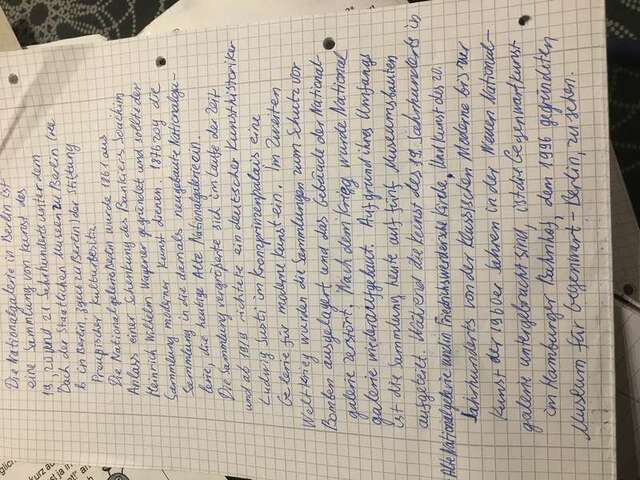 Die Nationalgalerie in Berlin ist
eine Sammlung von Kunst des
19, 20 und 21 Jahrhunderts unter dem
Dach der Staatlichen Museen zu Berlin
b in Berlin, zu Berlin) der Stiftung
Preußischer Kulturbesitz.
Die Nationalgelerie Berlin wurde 1861 aus
Anlass einer Schenkung des Bankiers Joachim
Heinrich Wilhelm Wagener gegründet und sollte der
Sammlung moderner Kunst dienen. 1876 zog die
Sammlung in die damals neugebaute Nationalga-
lerie, die heutige Alte Nationalgalerie ein.
Die Sammlung vergrößerte sich im Laufe der Zeit
und ab 1919 richtete ein deutscher Kunsthistoriker
Ludwig Justi im Kronzprinzenpalais eine
Gelerie für moderne Kunst ein. Im Zweiten
Weltkrieg wurden die Sammlungen zum Schutz vor
Bomben ausgelagert und das Gebäude der National-
galerie zerstört. Nach dem Krieg wurde National
galerie wiederaufgebaut. Aufgrund ihres Umfangs
ist die Sammlung heute auf fünf Museumsbauten
aufgeteilt. Während die Kunst des 19. Jahrhunderts in
Alte Nationalgelerie und in Friedrichswerdersche Kirche, Und Kunst des 20.
Jahrhunderts von der klassischen Moderne bis zur
Kunst der 1960er Jahren in der Neuen National-
galerie untergebracht sind, ist die Gegenwartkunst
im Hamburger Bahnhof, dem 1996 gegründeten
Museum für Gegenwart – Berlin, zu sehen.